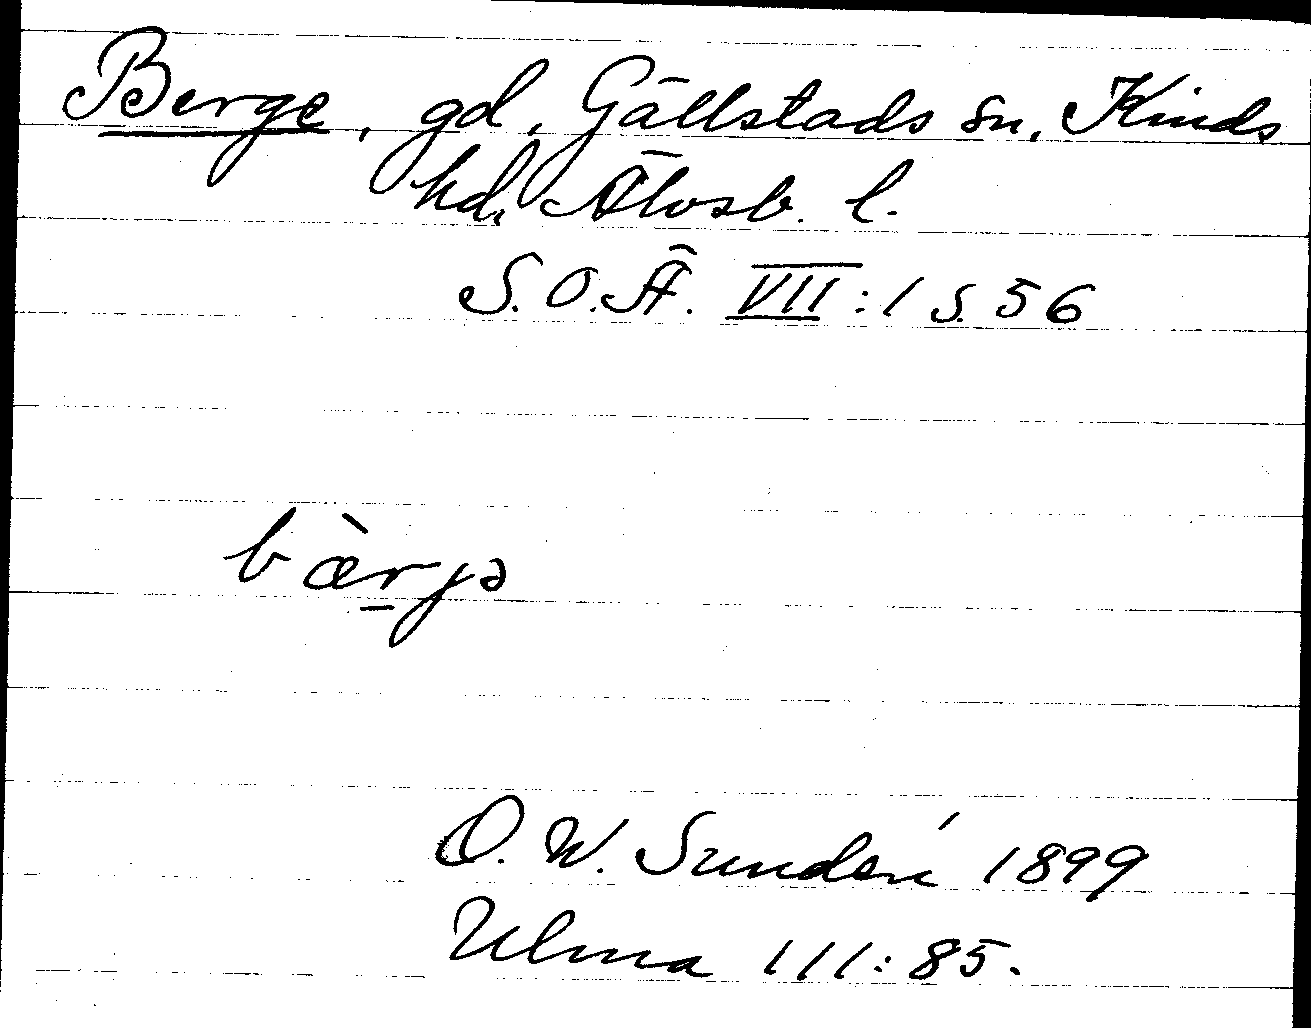 Berge, gd, Gällstads sn, Kinds
hd, Älvsb. l.
S.O.Ä. VII:1 s. 56
bæ̀rjə
O. W. Sundén 1899
Ulma 111:85.